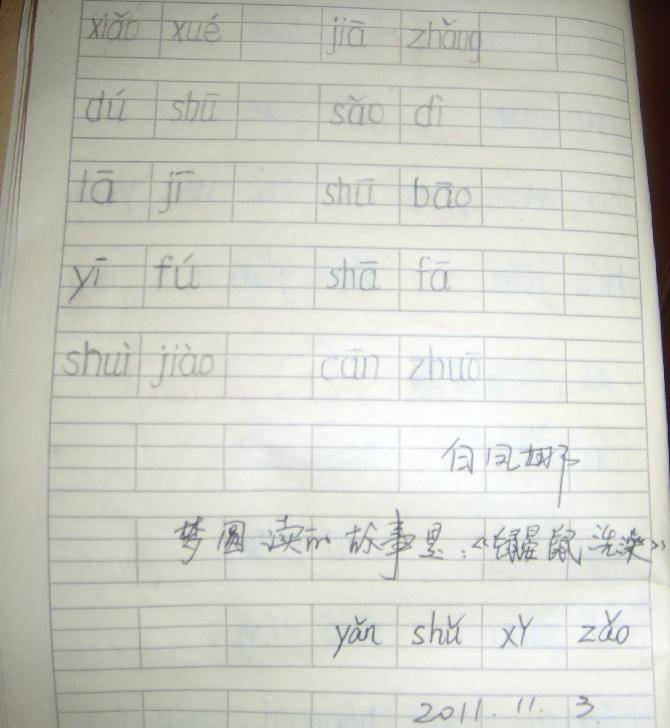 xiǎo xué jiā zhǎng
dú shū sǎo dì
lā jī shū bāo
yī fú shā fā
shuì jiào cān zhuō
梦圆读的故事是:《鼹鼠洗澡》
yǎn shǔ xǐ zǎo
2011.11.3